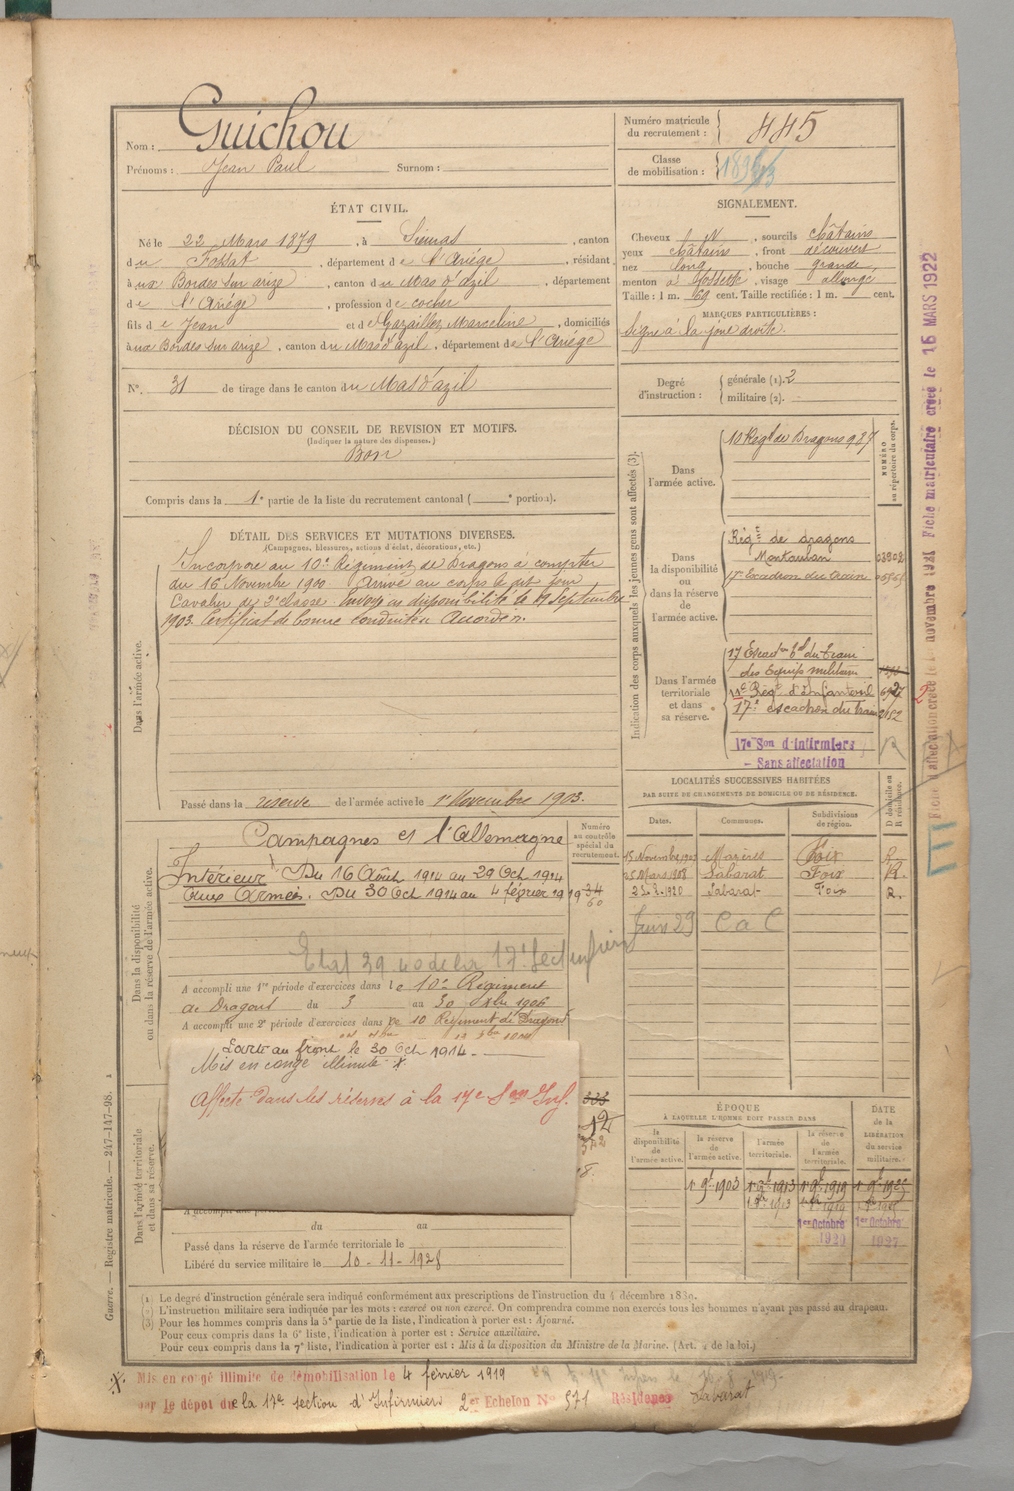 Nom : Guichou
Prénoms : Jean Paul Surnom :
Numéro matricule du recrutement : 445
Classe de mobilisation :
ÉTAT CIVIL.
Né le 22 Mars 1879, à Sieuras, canton
du Fossat, département de l'Ariége, résidant
à aux Bordes sur arize, canton du Mas d'azil, département
de l'Ariége, profession de cocher
fils de Jean et de Gazailles Marceline, domiciliés
à aux Bordes sur arize, canton du Mas d'azil, département de l'Ariége
N°. 31 de tirage dans le canton du Mas d'azil
DÉCISION DU CONSEIL DE REVISION ET MOTIFS.
(Indiquer la nature des dispenses.)
Bon
Compris dans la 1e partie de la liste du recrutement cantonal ( e portion).
SIGNALEMENT.
Cheveux N, sourcils châtains
yeux châtains, front découvert
nez long, bouche grande
menton à fossette, visage allongé
Taille : 1 m. 69 cent. Taille rectifiée : 1 m. cent.
MARQUES PARTICULIÈRES :
Signe à la joue droite.
Degré d'instruction : générale (1). 2
militaire (2).
DÉTAIL DES SERVICES ET MUTATIONS DIVERSES.
(Campagnes, blessures, actions d'éclat, décorations, etc.)
Dans l'armée active.
Incorporé au 10e Régiment de Dragons à compter
du 16 Novembre 1900 Arrivé au corps le dit jour
Cavalier de 2e classe. Envoyé en disponibilité le 19 Septembre
1903. Certificat de bonne conduite Accordé.
Passé dans la réserve de l'armée active le 1er Novembre 1903.
Indication des corps auxquels les jeunes gens sont affectés (3).
NUMÉRO au répertoire du corps.
Dans l'armée active.
10 Régt de Dragons 937
Dans la disponibilité ou dans la réserve de l'armée active.
Régt de dragons
Montauban
17e Escadron du Train
Dans l'armée territoriale et dans sa réserve.
17 Escadon tal du Train
des Equip militaire
11e Rég. d'Infanterie
17e escadron du Train
17e Son d'Infirmiers
- Sans affectation
Dans la disponibilité ou dans la réserve de l'armée active.
Campagnes et l'Allemagne
Numéro au contrôle spécial du recrutement.
Intérieur Du 16 Août 1914 au 29 Oct 1914
Aux Armées. Du 30 Oct 1914 au 4 février 19
Etat 39.40 de la 17e Sect infirm
A accompli une 1re période d'exercices dans le 10e Régiment
de Dragons du 3 au 30 1906
A accompli une 2e période d'exercices dans le 10 Régiment de Dragons
Parti au front le 30 Oct 1914.
Mis en congé illimité X.
Affecté dans les réserves à la 17e Son Inf.
LOCALITÉS SUCCESSIVES HABITÉES
PAR SUITE DE CHANGEMENTS DE DOMICILE OU DE RÉSIDENCE.
D domicile ou R résidence.
Dates. Communes. Subdivisions de région.
15 Novembre 1903 Mazères Foix R.
25 Mars 1908 Sabarat Foix R.
23-3-1920 Sabarat Foix R.
Juin 29 C a C
ÉPOQUE
À LAQUELLE L'HOMME DOIT PASSER DANS
DATE de la LIBÉRATION du service militaire.
la disponibilité de l'armée active. la réserve de l'armée active. l'armée territoriale. la réserve de l'armée territoriale.
1er 9bre 1903 1er 9bre 1913 1er 9bre 1919
1er Octobre 1920 1er Octobre 1927
Dans l'armée territoriale et dans sa réserve.
du au
Passé dans la réserve de l'armée territoriale le
Libéré du service militaire le 10-11-1928
(1) Le degré d'instruction générale sera indiqué conformément aux prescriptions de l'instruction du 4 décembre 1889.
(2) L'instruction militaire sera indiquée par les mots : exercé ou non exercé. On comprendra comme non exercés tous les hommes n'ayant pas passé au drapeau.
(3) Pour les hommes compris dans la 5e partie de la liste, l'indication à porter est : Ajourné.
Pour ceux compris dans la 6e liste, l'indication à porter est : Service auxiliaire.
Pour ceux compris dans la 7e liste, l'indication à porter est : Mis à la disposition du Ministre de la Marine. (Art. de la loi.)
X. Mis en congé illimité de démobilisation le 4 février 1919
par le dépôt de la 17e section d'Infirmiers 2er Echelon N° 571 Résidence Sabarat
Guerre. — Registre matricule. — 247-147-98.
Fiche matriculaire créée le 16 MARS 1922